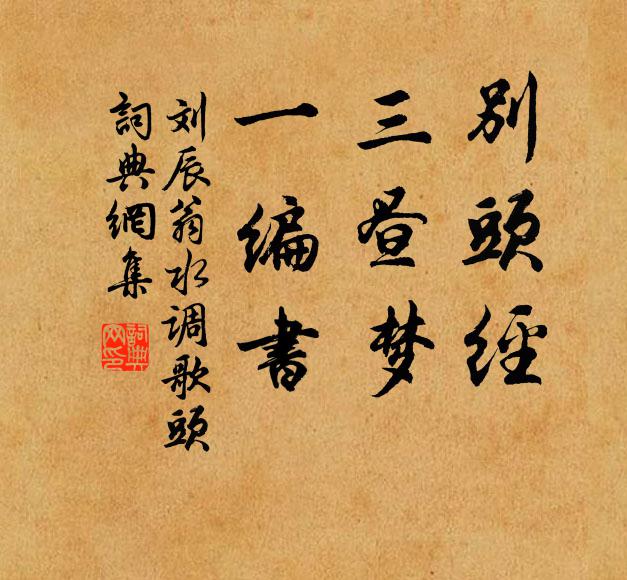 別頭經
三昼梦
一编書
刘辰翁水调歌頭
詞典網集
詞典网印